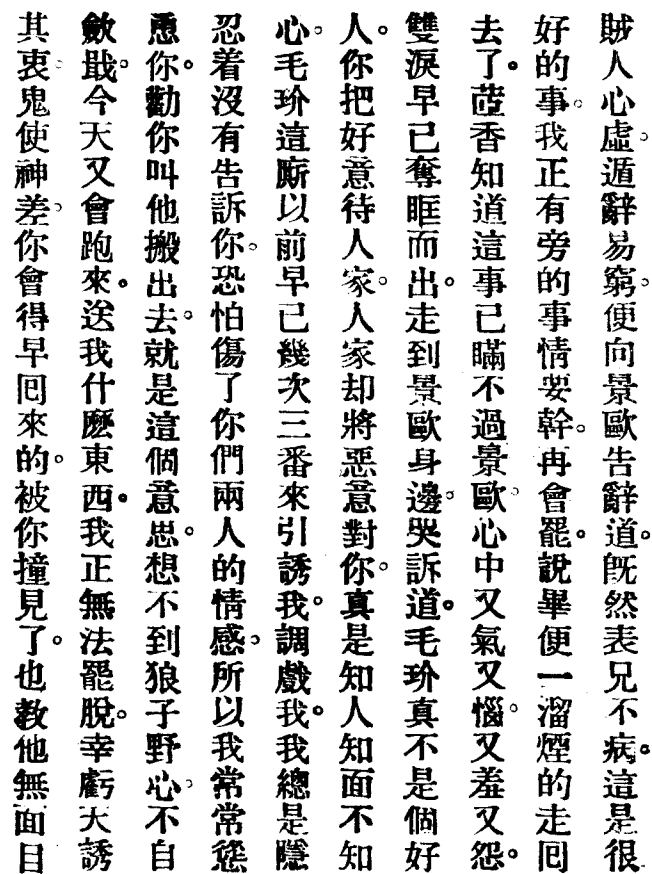 賊人心虛。遁辭易窮。便向景歐告辭道。旣然表兄不病。這是很
好的事。我正有旁的事情要幹。再會罷。說畢便一溜煙的走囘
去了。茝香知道這事已瞞不過景歐。心中又氣又惱。又羞又怨。
雙淚早已奪眶而出。走到景歐身邊。哭訴道。毛玠真不是個好
人。你把好意待人家。人家却將惡意對你。真是知人知面不知
心。毛玠這廝以前早已幾次三番來引誘我。調戲我。我總是隱
忍着沒有告訴你。恐怕傷了你們兩人的情感。所以我常常慫
恿你。勸你叫他搬出去。就是這個意思。想不到狼子野心。不自
斂戢。今天又會跑來。送我什麼東西。我正無法罷脫。幸虧天誘
其衷。鬼使神差。你會得早囘來的。被你撞見了。也敎他無面目